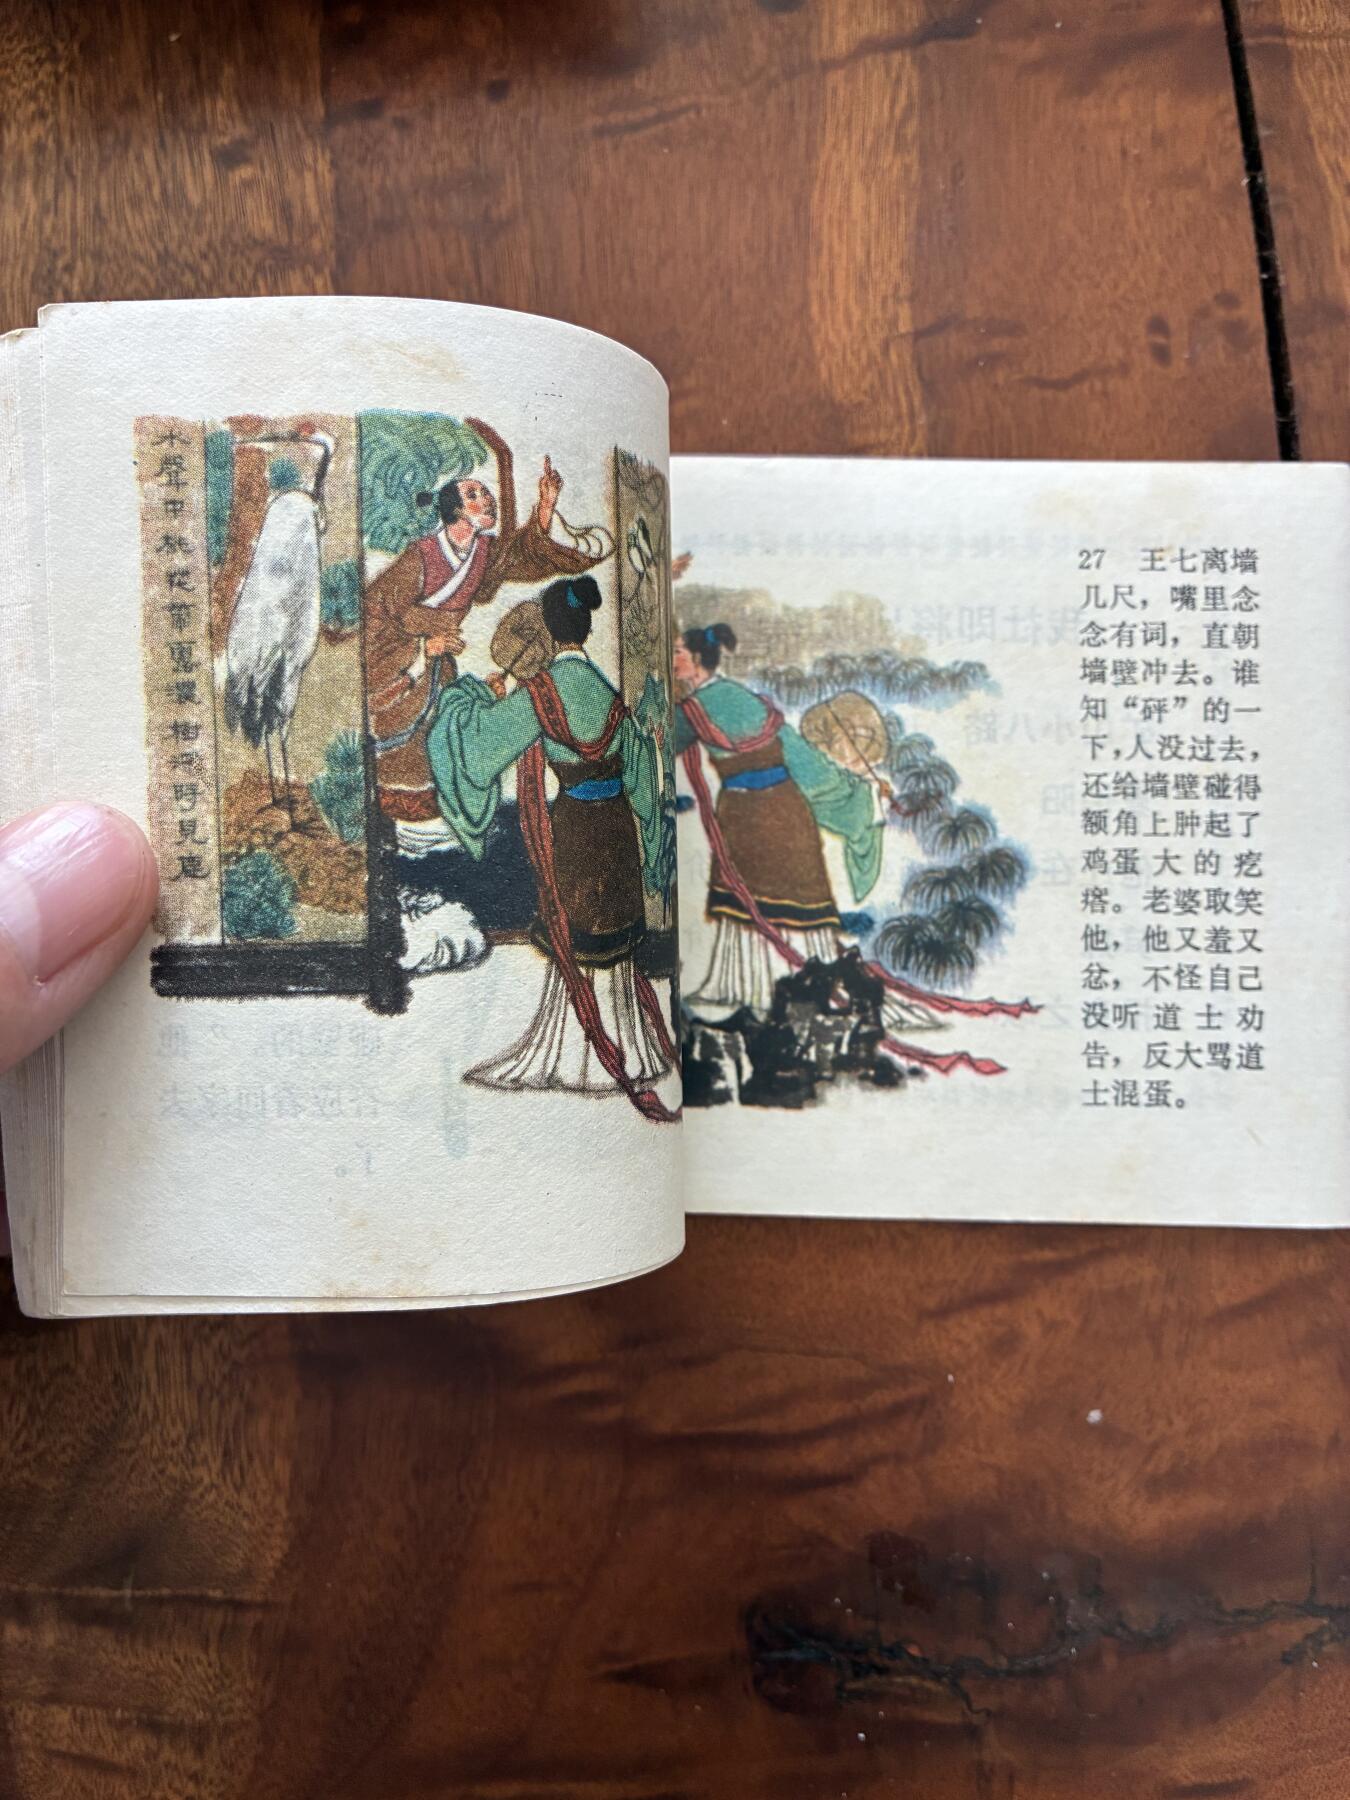 水
聲
中
桃
從
帶
露
濃
樹
深
時
見
鹿
27　王七离墙
几尺，嘴里念
念有词，直朝
墙壁冲去。谁
知“砰”的一
下，人没过去，
还给墙壁碰得
额角上肿起了
鸡蛋大的疙
瘩。老婆取笑
他，他又羞又
忿，不怪自己
没听道士劝
告，反大骂道
士混蛋。